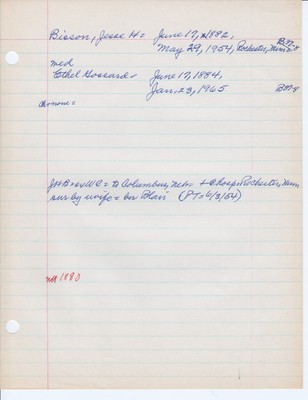 Bisson, Jesse H = June 17, 1882,
May 29, 1954, Rochester, Minn
med
Ethel Gossard - June 17, 1884,
Jan, 23, 1965
Ch=none =
to Columbus, Nebr
Rochester, Minn
sur by wife = bur Blair (PT=6/3/54)
1880